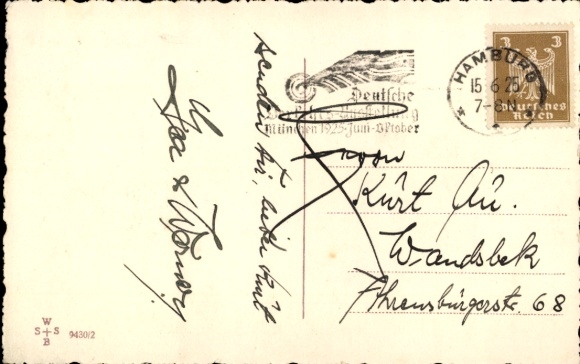 senden Dir, lieber Kurt
3 3
Deutsches
Reich
HAMBURG
15.6.25
7-8
Deutsche
Verkehrs-Ausstellung
München 1925 Juni-Oktober
Herrn
Kurt Au.
Wandsbek
Ahrensburgerstr. 68
W
S + S
B
9430/2